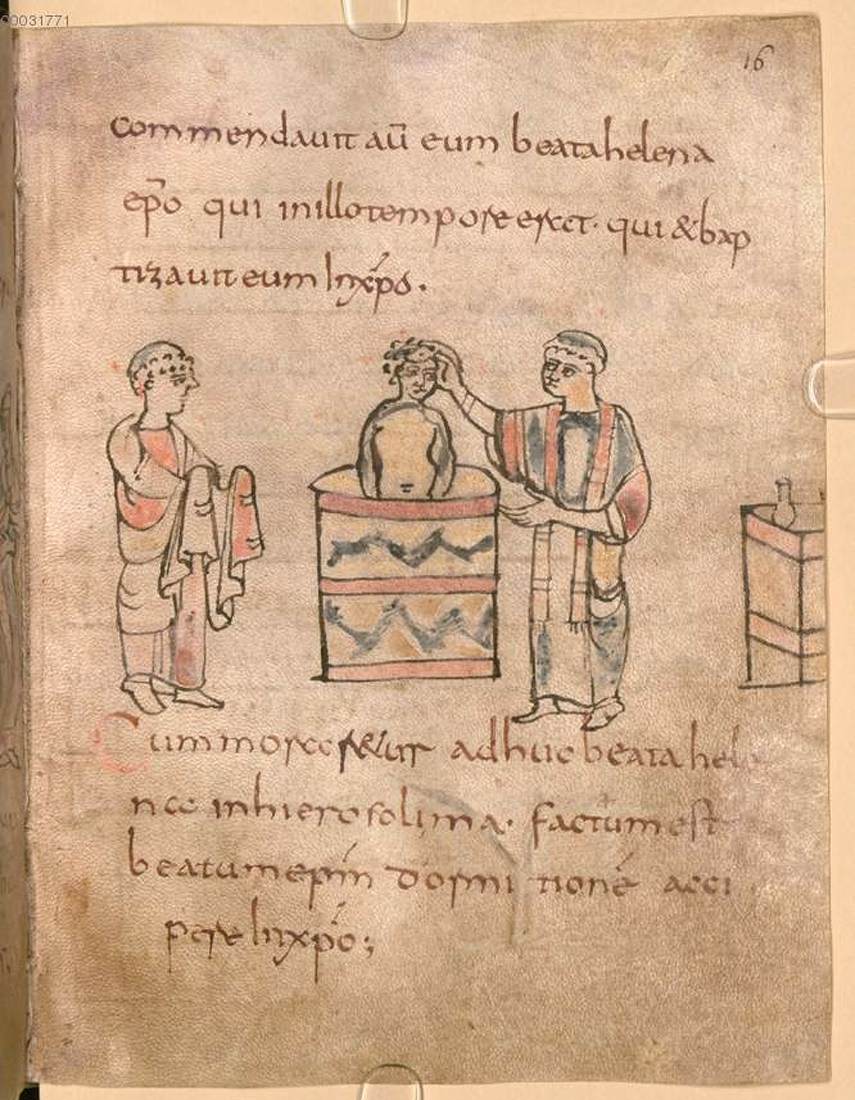 00031771
16
commendauit aū eum beata helena
ep̄o qui in illo tempore erat· qui & bap
tizauit eum In xp̄o.
Cum moraretur adhuc beata hel
na in hierosolima· factum est
beatum ep̄m dormitionē acci
pere In xp̄o;